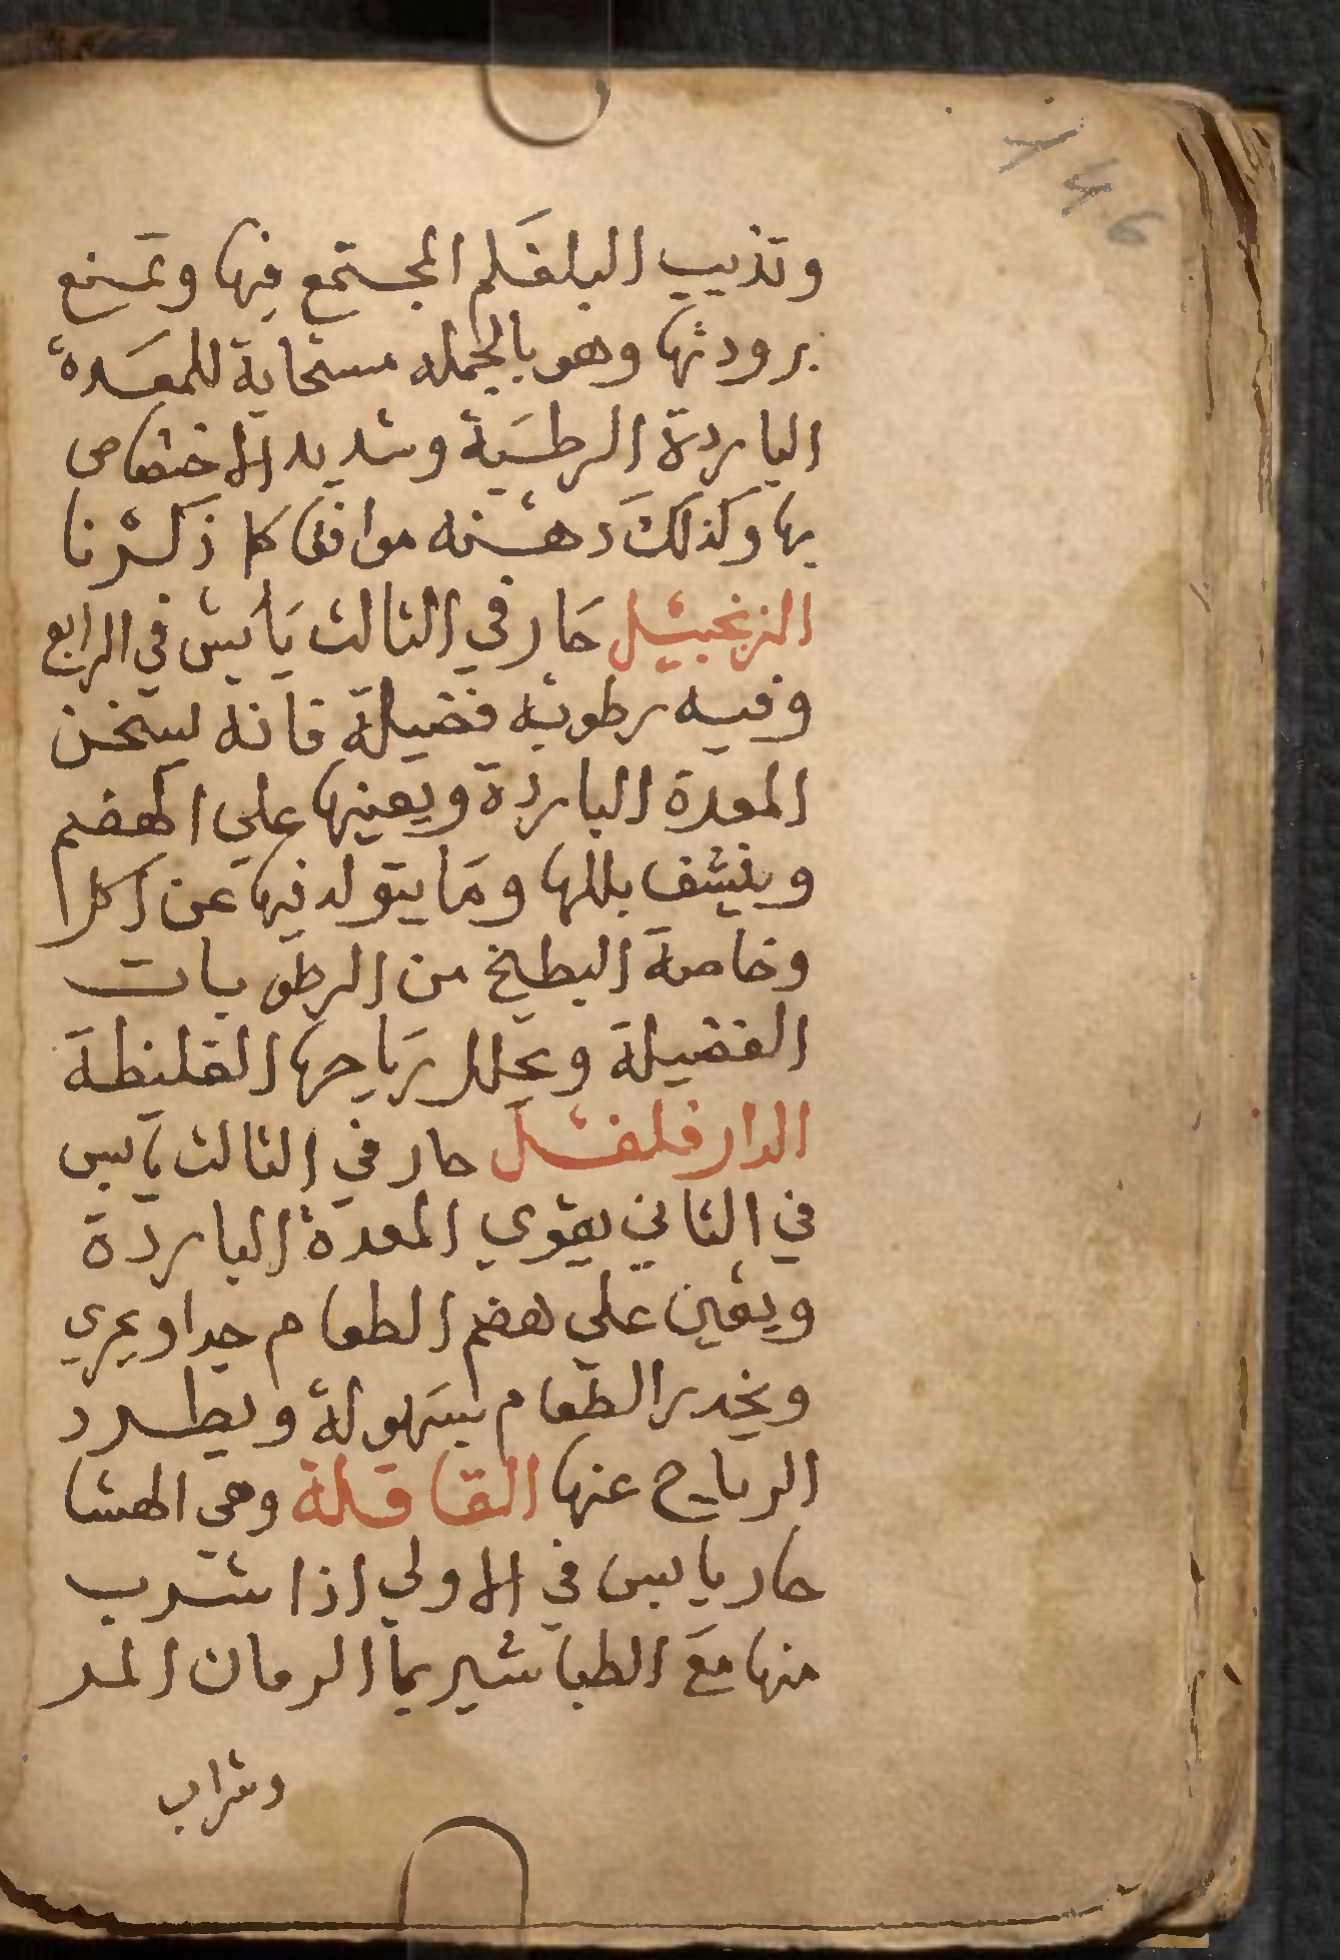 وتذيب البلغم المجتمع فيها وتمنع
برودتها وهو بالجمله للمعدة
الباردة الرطبة وشديد الاختصاص
بها وكذلك دهنه موافق كما ذكرنا
الزنجبيل حار في الثالث يابس في الرابع
وفيه رطوبة فضيلة فانه يسخن
المعدة الباردة ويعينها علي الهضم
وينشف بللها وما يتولد فيها عن
وخاصة البطيخ من الرطوبات
الفضيلة ويحلل رياحها الغليظة
الدارفلفل حار في الثالث يابس
في الثاني يقوي المعدة الباردة
ويعين علي هضم الطعام جدا ويمري
ويحدر الطعام بسهولة ويطرد
الرياح عنها القاقلة وهي
حار يابس في الاولي اذا شرب
منها مع الطباشير بما الرمان المر
وشراب